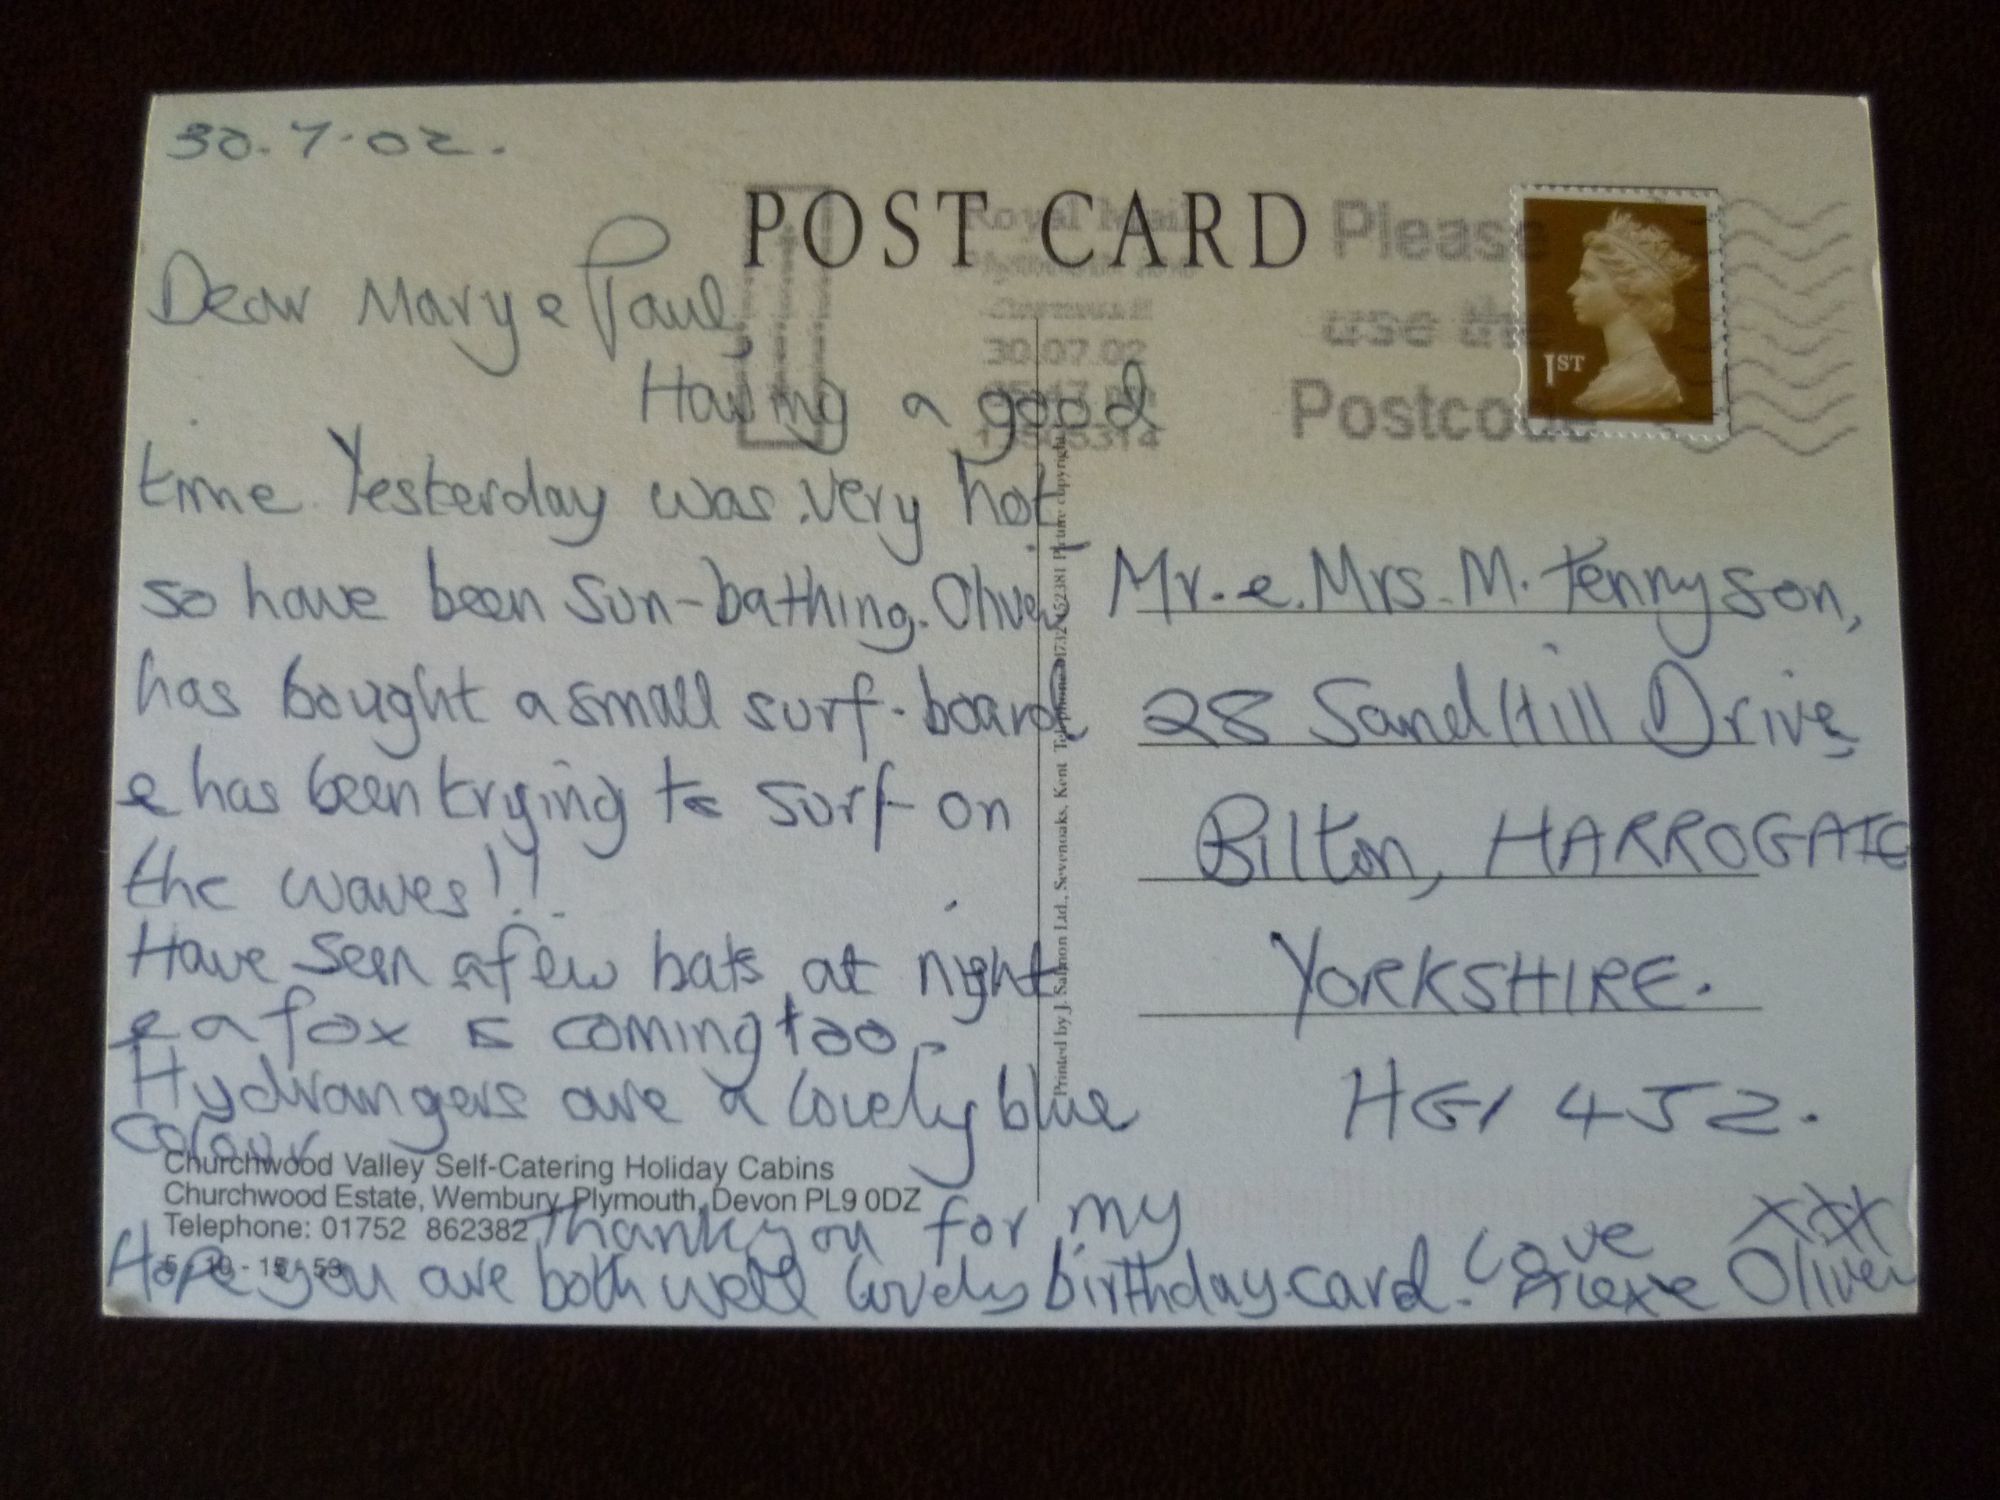 30.7.02.
POST CARD
Royal Mail
30.07.02
Please
use the
Postcode
1ST
Dear Mary e Paul,
Having a good
time. Yesterday was very hot
so have been sun-bathing. Oliver
has bought a small surf-board
e has been trying to surf on
the waves!!
Have seen a few bats at night
e a fox is coming too.
Hydrangers are a lovely blue
colour
Churchwood Valley Self-Catering Holiday Cabins
Churchwood Estate, Wembury, Plymouth, Devon PL9 0DZ
Telephone: 01752 862382
Thankyou for my
Hope you are both well lovely birthday card. Love
Oliver
xxx
Printed by J. Salmon Ltd., Sevenoaks, Kent Telephone 01732 452381 Picture copyright
Mr. e. Mrs. M. Tennyson,
28 Sand Hill Drive,
Bilton, HARROGATE
YORKSHIRE.
HG1 4J2.